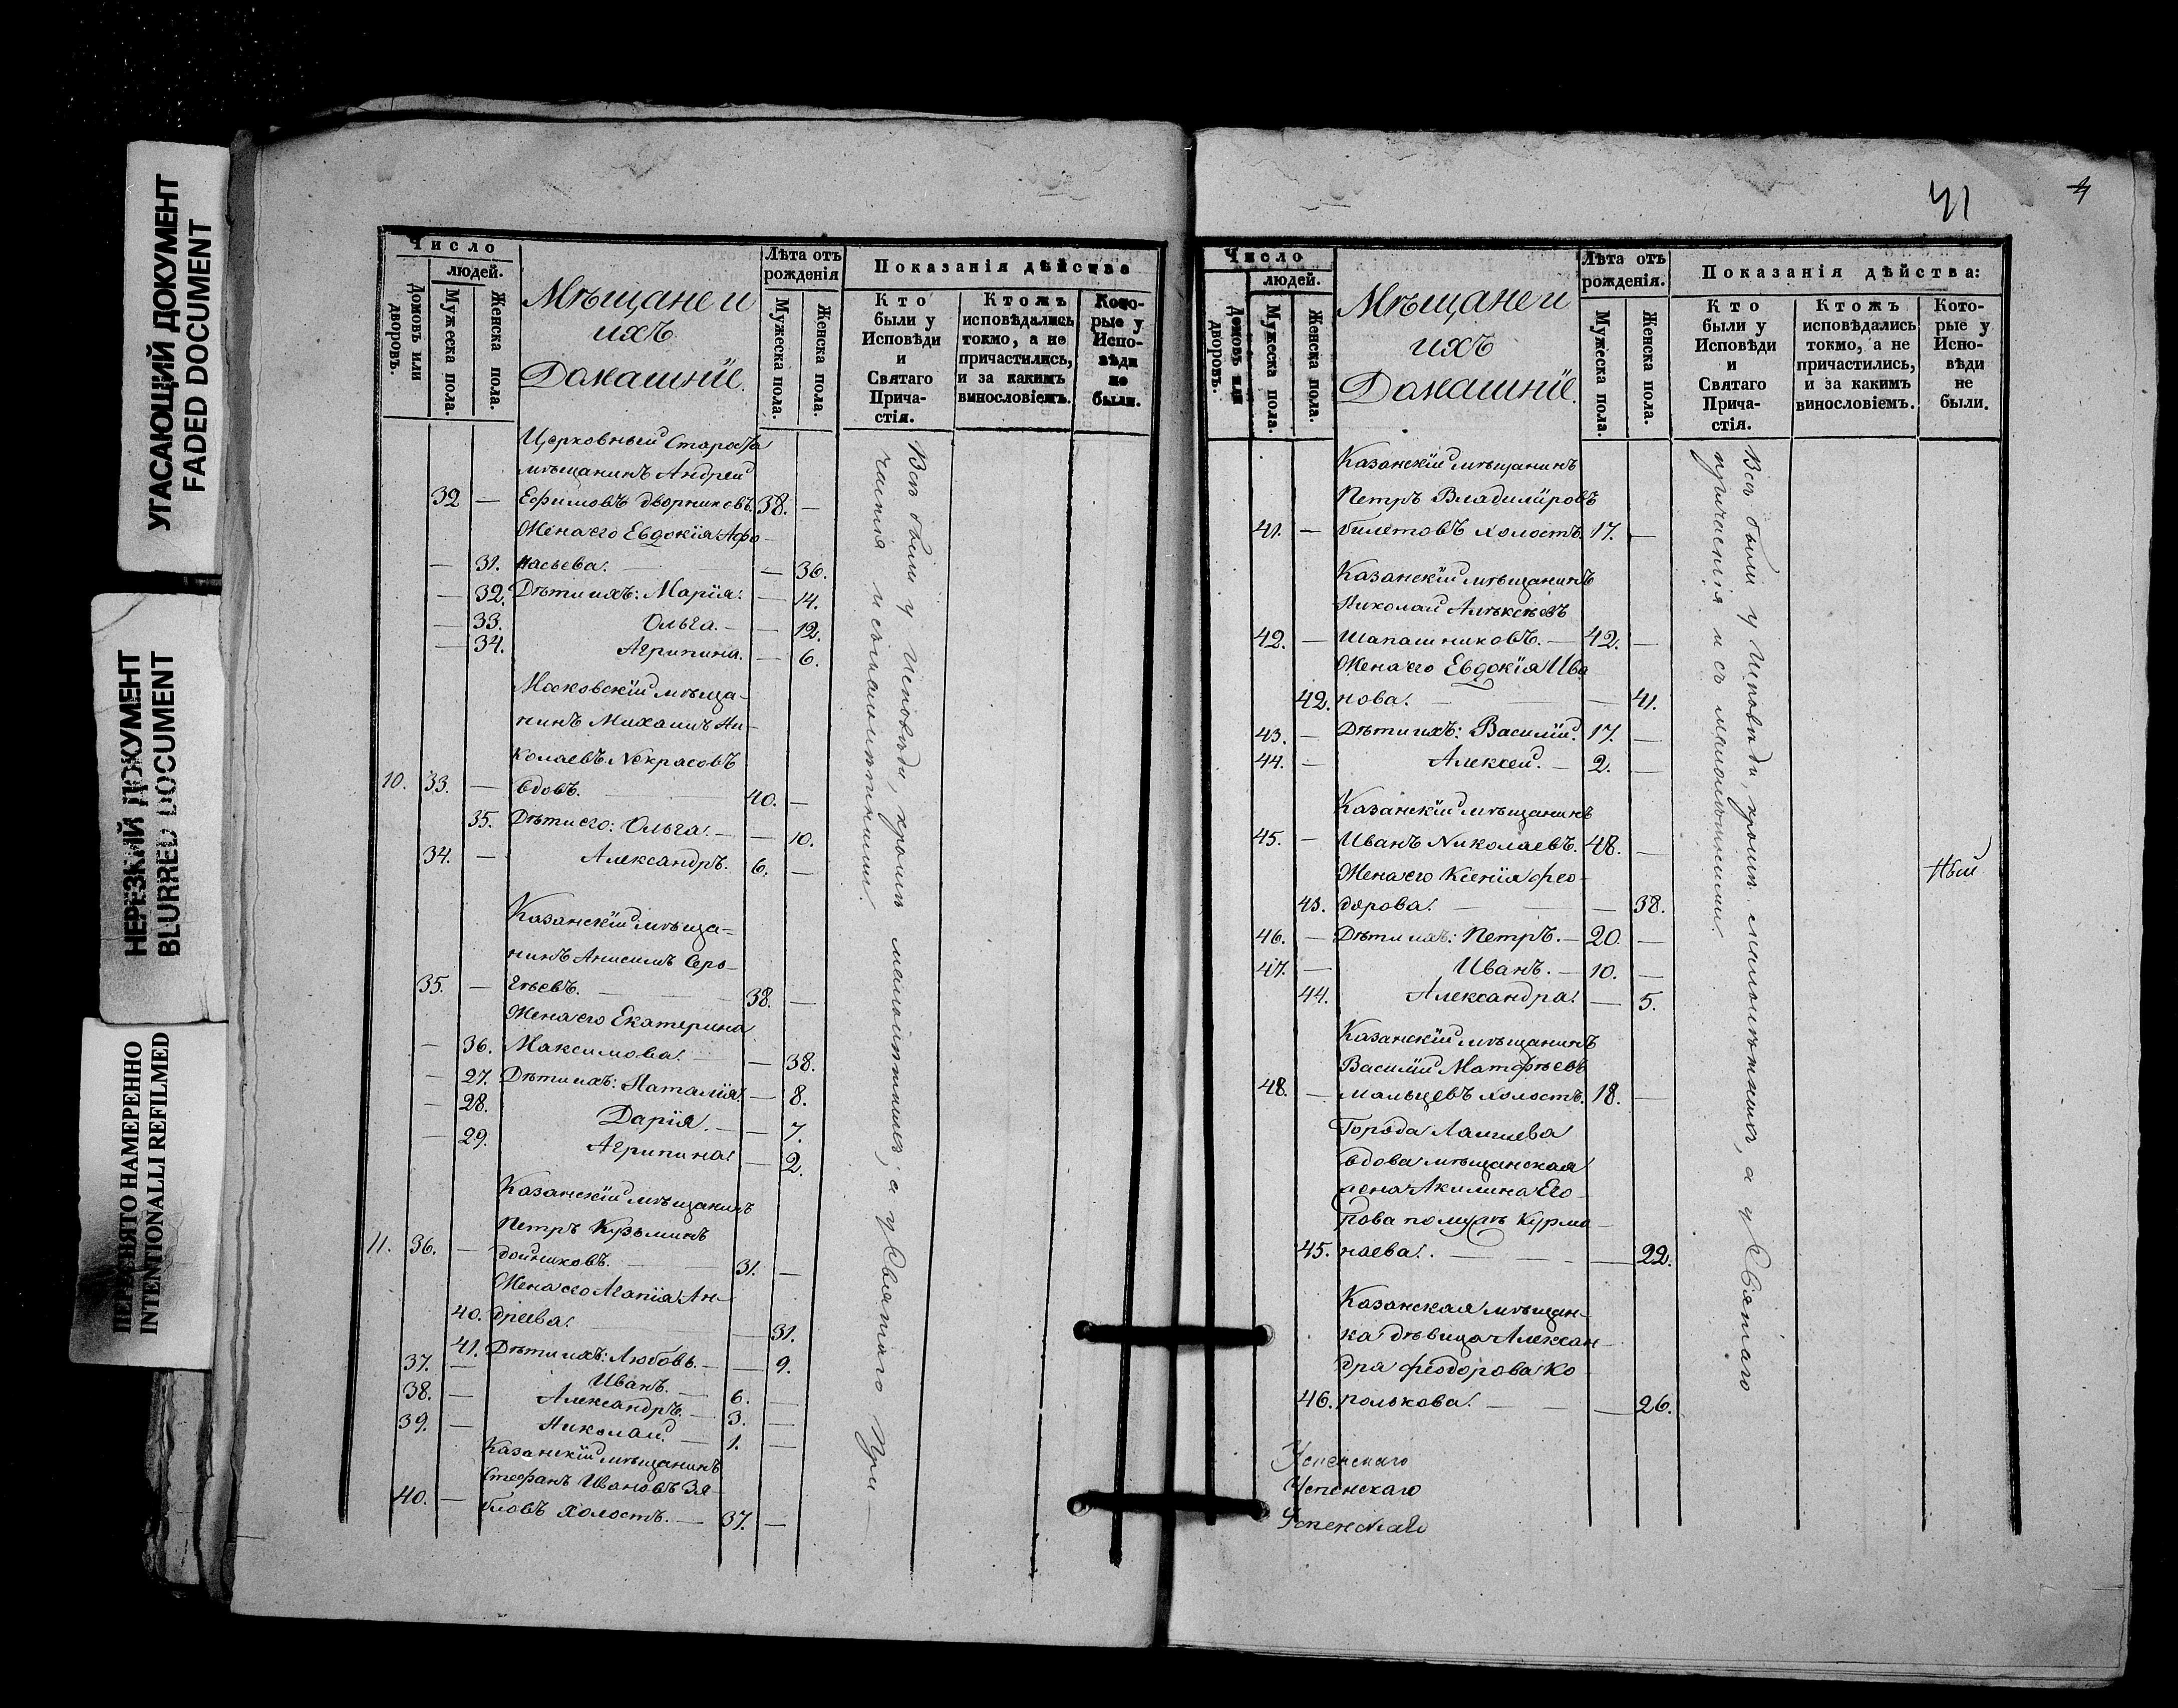 УГАСАЮЩИЙ ДОКУМЕНТ
FADED DOCUMENT
НЕРЕЗКИЙ ДОКУМЕНТ
BLURRED DOCUMENT
ПЕРЕСНЯТО НАМЕРЕННО
INTENTIONALLI REFILMED
Число
людей.
Домовъ или дворовъ.
Мужеска пола.
Женска пола.
Мѣщане и
ихъ
Домашніе.
Лѣта отъ
рожденія
Мужеска пола.
Женска пола.
Показанія дѣйства
Кто
были у
Исповѣди
и
Святаго
Прича-
стія.
Ктожъ
исповѣдались
токмо, а не
причастились,
и за какимъ
винословіемъ.
Кото-
рые у
Испо-
вѣди
не
были.
Церковный Староста
мѣщанинъ Андрей
32 — Ефимовъ Дворниковъ. 38. —
Жена его Евдокія Афо-
— 31. насьева. — 36.
— 32. Дѣти ихъ: Марія. — 14.
— 33. Ольга. — — 12.
— 34. Агрипина. — 6.
Московскій мѣща-
нинъ Михаилъ Ни-
колаевъ Некрасовъ
10. 33. — вдовъ. — 40. —
35. Дѣти его: Ольга. — — 10.
34. — Александръ. 6. —
Казанскій мѣща=
нинъ Анисимъ Сер-
35. — гѣевъ. — 38. —
Жена его Екатерина
— 36. Максимова. — — 38.
— 27. Дѣти ихъ: Наталія. — 8.
— 28. Дарія. — — 7.
— 29. Агрипина. — 2.
Казанскій мѣщанинъ
Петръ Кузьминъ
11. 36. — Дойниковъ. — 31. —
Жена его Агапія Ан-
40. дреева. — — 31.
41. Дѣти ихъ: Любовь. — — 9.
37. — Иванъ. — 6. —
38. — Александръ. — 3. —
39. — Николай. — 1. —
Казанскій мѣщанинъ
Стефанъ Ивановъ Зя-
40. — бловъ холостъ. — 37. —
Всѣ были у Исповѣди, кромѣ малолѣтнихъ; а у Святаго При-
частія и съ малолѣтними.
41
4
Число
людей.
Домовъ или дворовъ.
Мужеска пола.
Женска пола.
Мѣщане и
ихъ
Домашніе.
Лѣта отъ
рожденія.
Мужеска пола.
Женска пола.
Показанія дѣйства:
Кто
были у
Исповѣди
и
Святаго
Прича-
стія.
Ктожъ
исповѣдались
токмо, а не
причастились,
и за какимъ
винословіемъ.
Кото-
рые у
Испо-
вѣди
не
были.
Казанскій мѣщанинъ
Петръ Владиміровъ
41. — билетовъ холостъ. 17. —
Казанскій мѣщанинъ
Николай Алѣксѣевъ
42. — Шапашниковъ. — 42. —
Жена его Евдокія Ива-
42. нова. — — 41.
43. — Дѣти ихъ: Василій. 17. —
44. — Алексей. — 2. —
Казанскій мѣщанинъ
45. — Иванъ Николаевъ. 48. —
Жена его Ксенія Фео-
43. дорова. — — 38.
46. — Дѣти ихъ: Петръ. — 20. —
47. — Иванъ. — 10. —
44. Александра. — 5.
Казанскій мѣщанинъ
Василій Матфѣевъ
48. — мальцевъ холостъ. 18. —
Города Лаишева
вдова мѣщанская
жена Акилина Его-
рова по мужѣ Курма-
45. наева. — — 22.
Казанская мѣщан-
ка дѣвица Алексан-
дра Феодорова Ко-
46. полькова. — — 26.
Всѣ были у Исповѣди, кромѣ малолѣтнихъ, а у Святаго
причастія и съ малолѣтними
Успенскаго
Успенскаго
Успенскаго